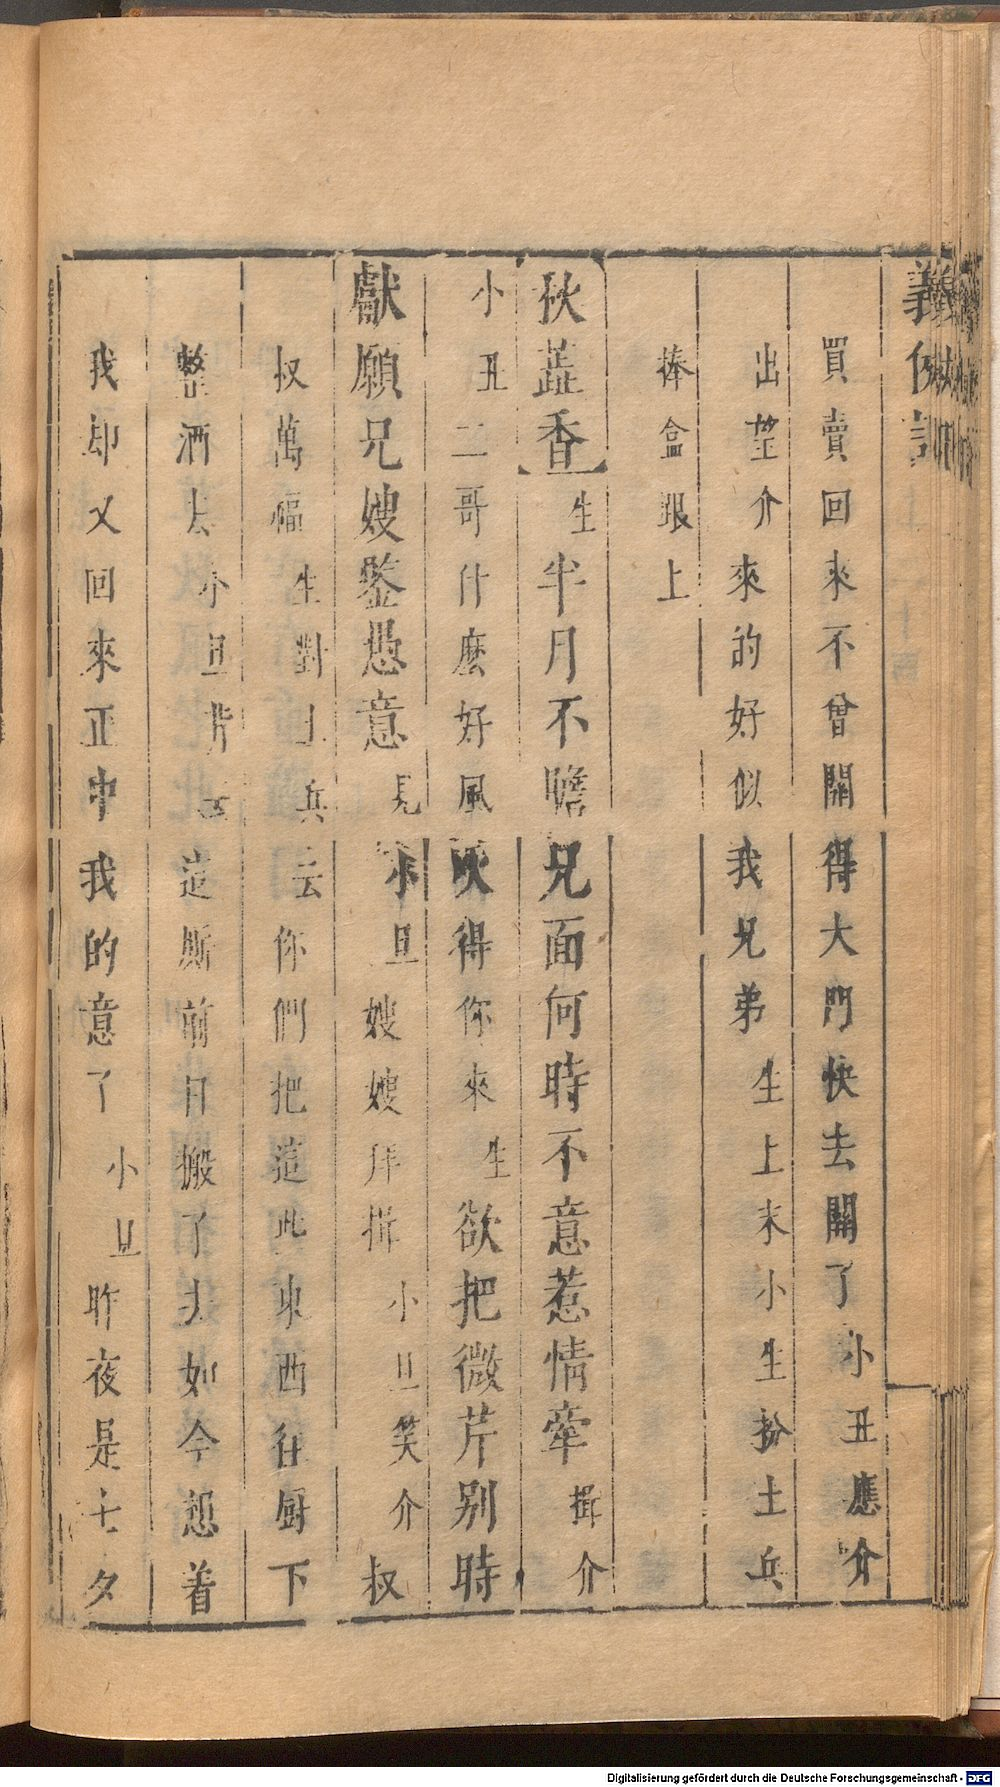 義俠記
買賣回來不曾關得大門快去關了小丑應介
出望介來的好似我兄弟生上末小生扮土兵
捧盒跟上
秋蕋香生半月不瞻兄面何時不意惹情牽揖介
小丑二哥什麽好風吹得你來生欲把微芹別時
獻願兄嫂鑒愚意見小旦嫂嫂拜揖小旦笑介叔
叔萬福生對土兵云你們把這些東西往厨下
整酒去小旦背云這厮前日搬了去如今想着
我却又回來正中我的意了小旦昨夜是七夕
Digitalisierung gefördert durch die Deutsche Forschungsgemeinschaft - DFG